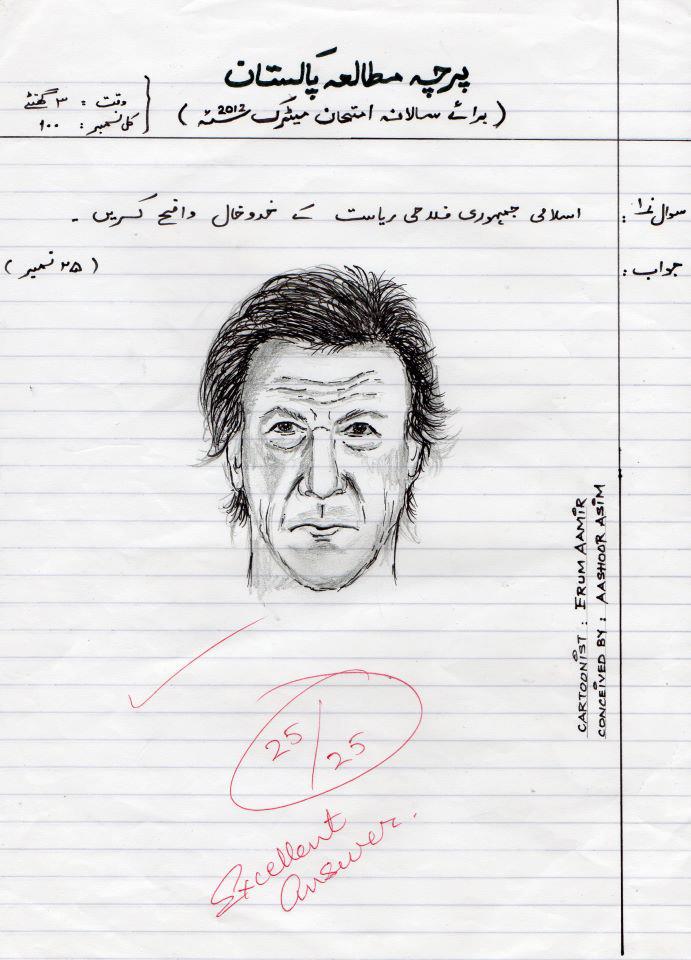 پرچہ مطالعہ پاکستان
( برائے سالانہ امتحان میٹرک 2012ء )
وقت : ۳ گھنٹے
کل نمبر : ۱۰۰
سوال نمبر ۱ : اسلامی جمہوری فلاحی ریاست کے خدوخال واضح کریں ۔
جواب :
( ۲۵ نمبر )
CARTOONIST : ERUM AAMIR
CONCEIVED BY : AASHOOR ASIM
25/25
Excellent
Answer.